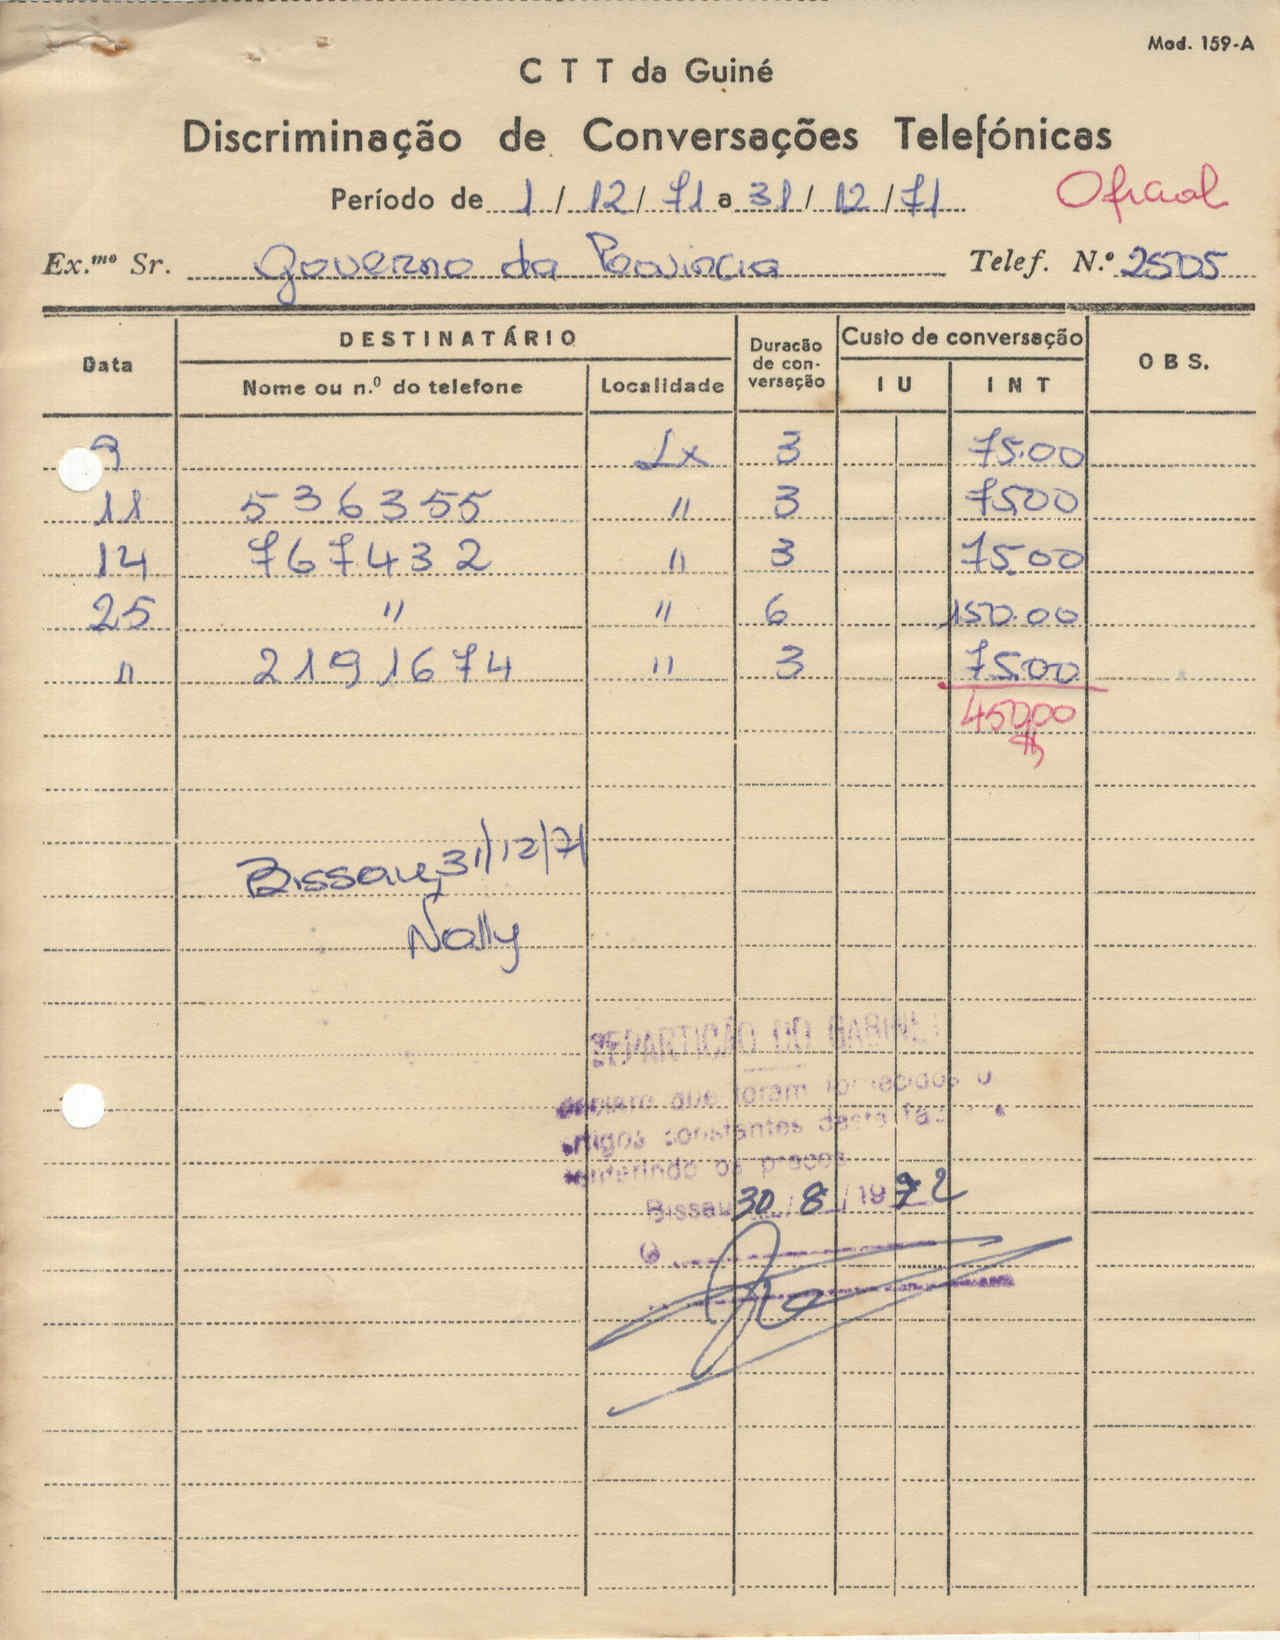 Mod. 159-A
C T T da Guiné
Discriminação de Conversações Telefónicas
Período de 1 / 12 / 71 a 31 / 12 / 71 Oficial
Ex.mo Sr. Governo da Provincia Telef. N.º 2505
Data DESTINATÁRIO Duracão de con-versação Custo de conversação OBS.
Nome ou n.º do telefone Localidade I U I N T
9 Lx 3 75.00
11 536355 " 3 7500
14 767432 " 3 75.00
25 " " 6 150.00
" 2191674 " 3 75.00
450,00
Bissau, 31/12/71
Nally
REPARTIÇÃO DO GABINE
que foram fornecidos o
artigos constantes desta fac
conferindo os preços
Bissau 30 / 8 / 1972
O